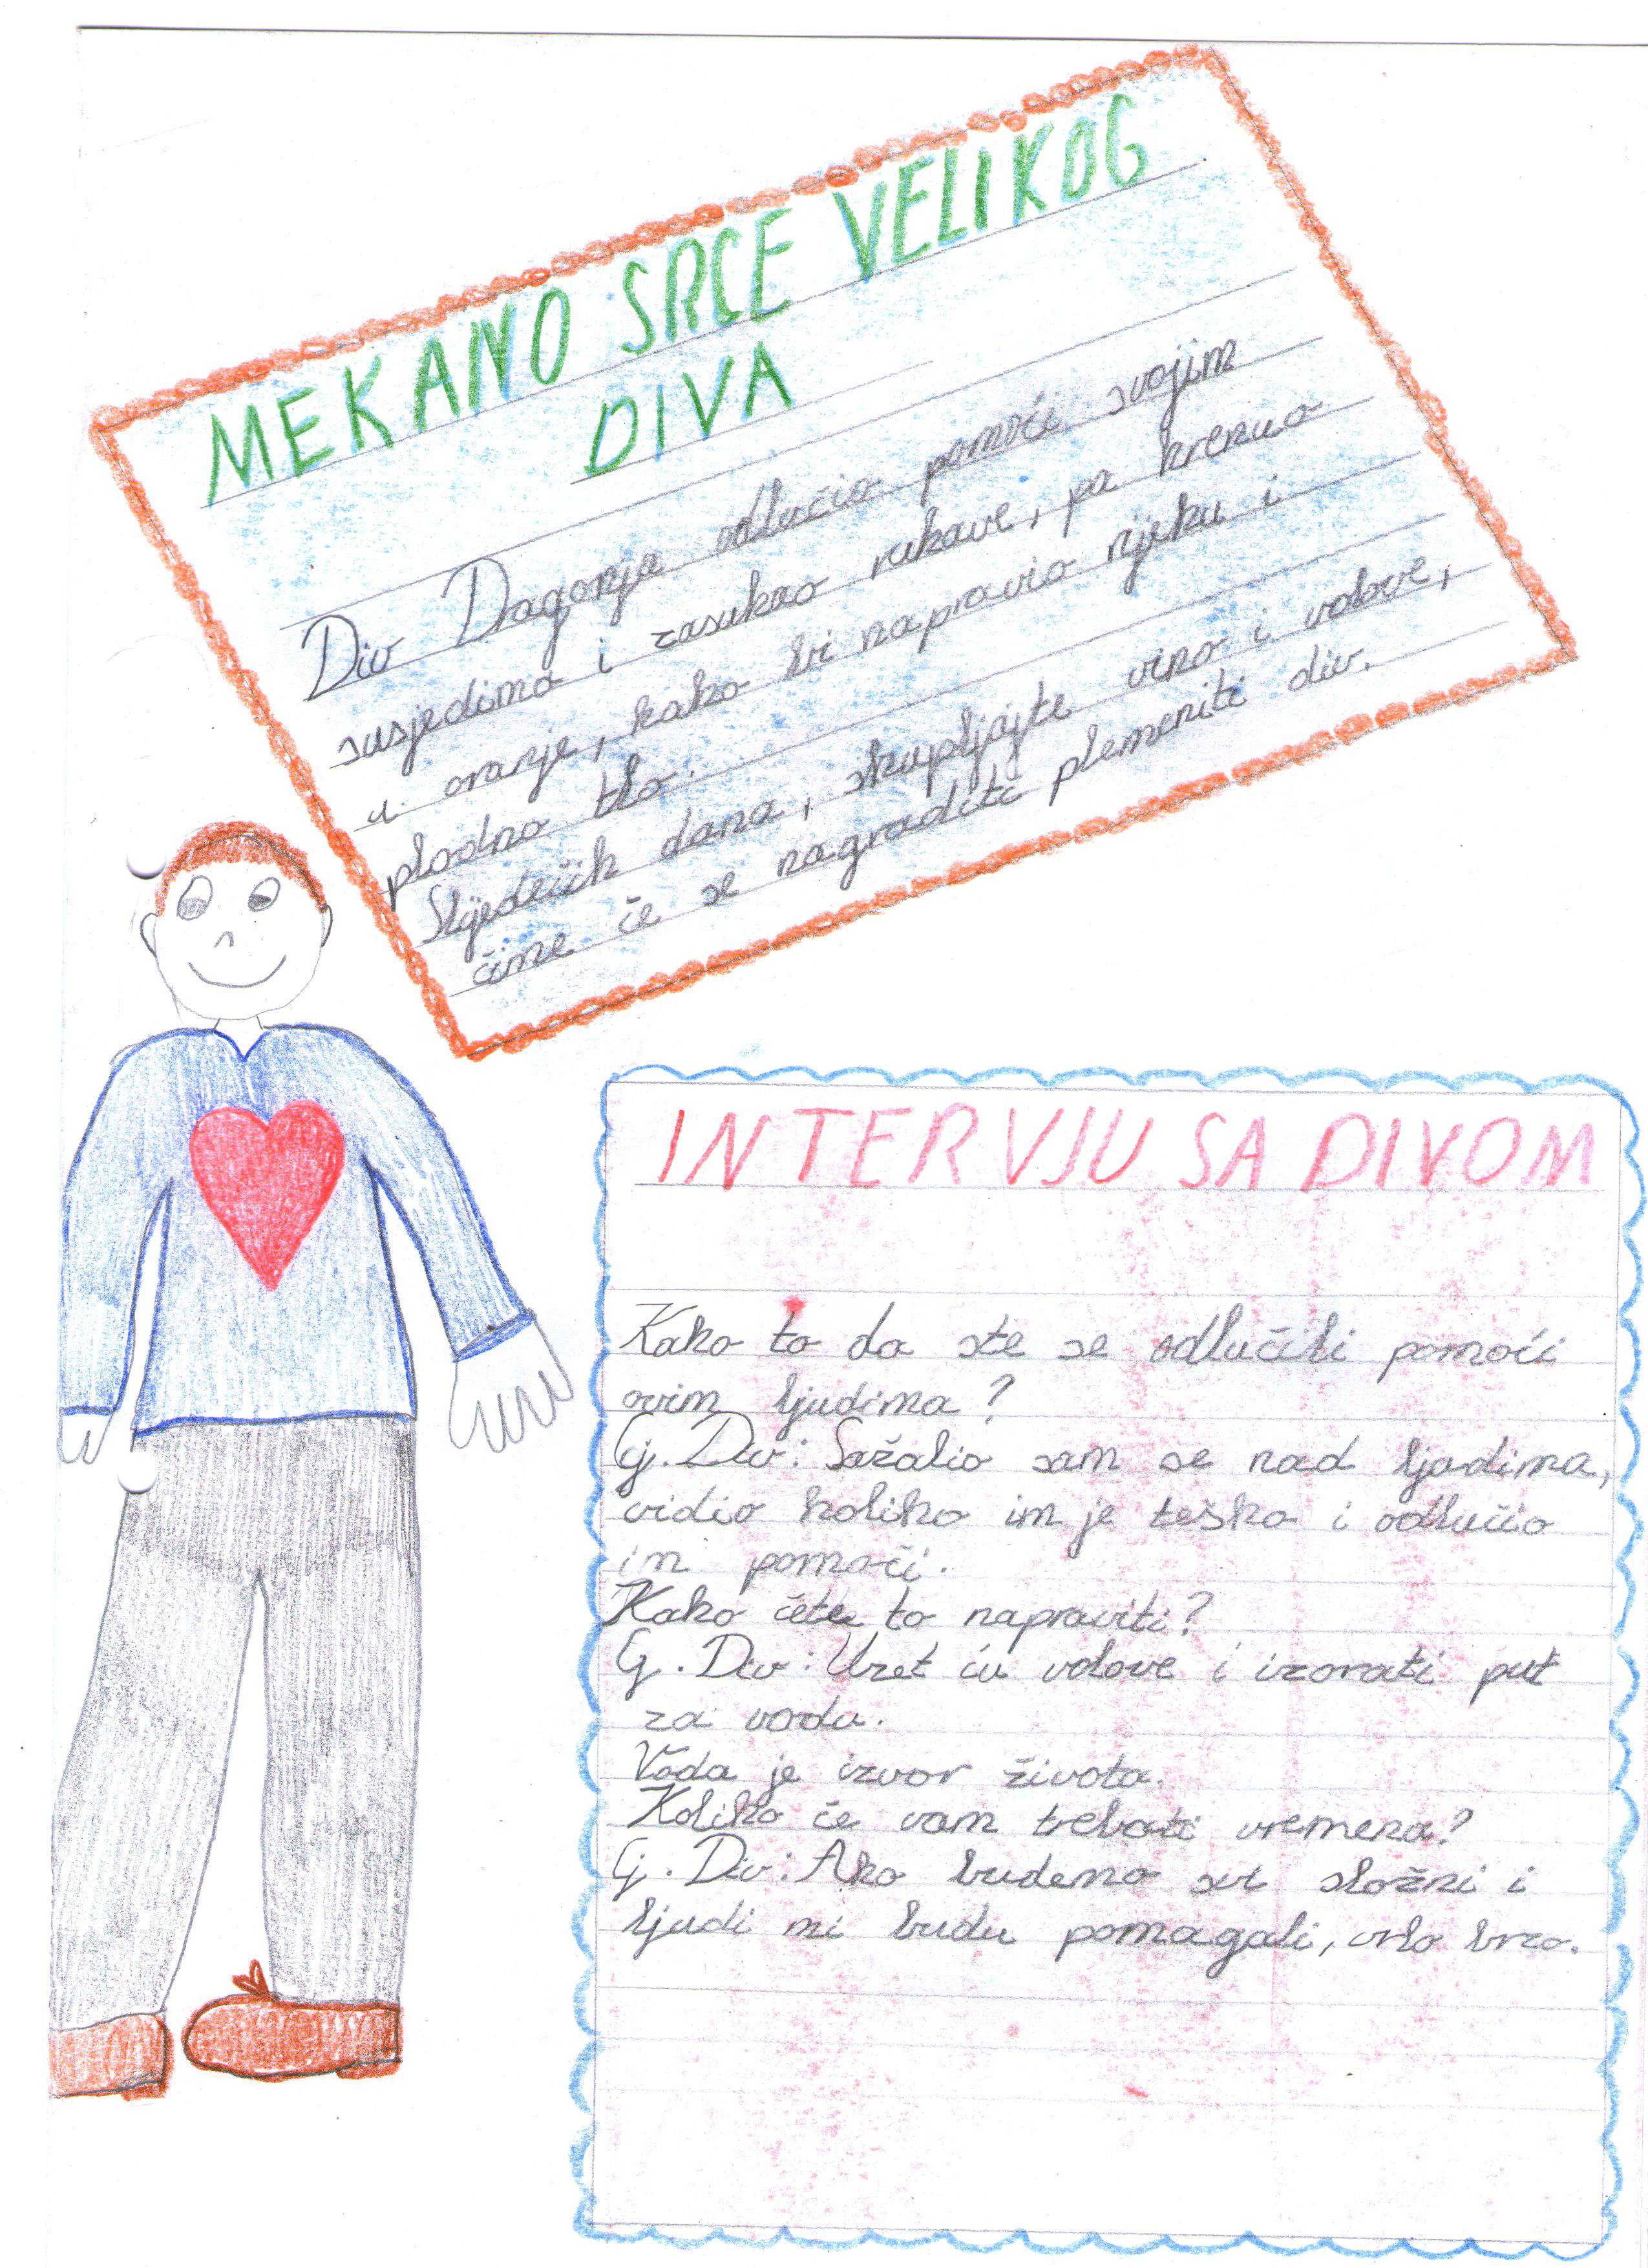 MEKANO SRCE VELIKOG
DIVA
Div Dragonja odlučio pomoći svojim
susjedima i zasukao rukave, pa krenuo
u oranje, kako bi napravio rijeku i
plodno tlo.
Slijedećih dana, skupljajte vino i volove,
čime će se nagraditi plemeniti div.
INTERVJU SA DIVOM
Kako to da ste se odlučili pomoći
ovim ljudima?
G. Div: Sažalio sam se nad ljudima,
vidio koliko im je teško i odlučio
im pomoči.
Kako ćete to napraviti?
G. Div: Uzet ću volove i izorati put
za vodu.
Voda je izvor života.
Koliko će vam trebati vremena?
G. Div: Ako budemo svi složni i
ljudi mi budu pomagali, vrlo brzo.